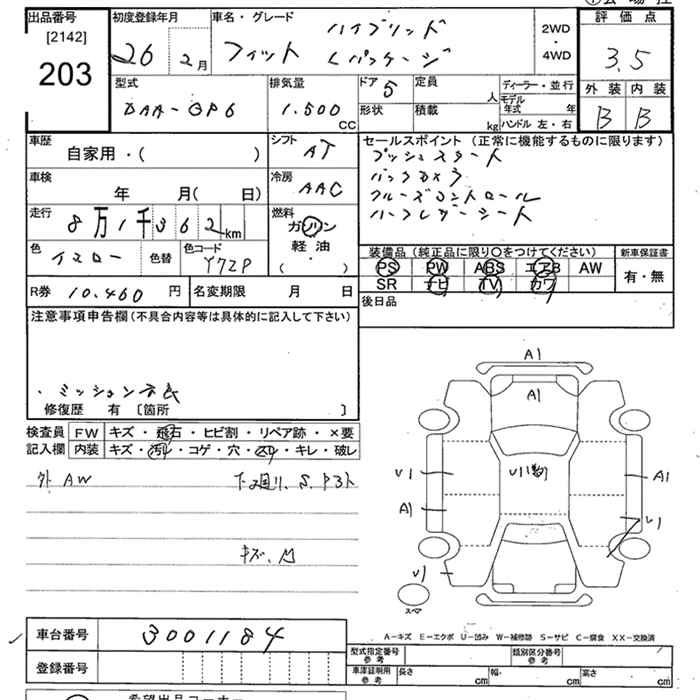 出品番号
[2142]
203
初度登録年月
26 2月
車名・グレード
ハイブリッド
フィット Lパッケージ
2WD
・
4WD
評価点
3.5
型式
DAA-GP6
排気量
1.500
CC
ドア 5
定員
人
形状
積載
kg
ディーラー・並行
モデル年式 年
ハンドル 左・右
外装 内装
B B
車歴
自家用・( )
シフト
AT
車検
年 月( 日)
冷房
AAC
走行
8万1千362km
燃料
ガソリン
軽油
・
( )
色
イエロー
色替
色コード
Y72P
R券 10.460 円
名変期限 月 日
セールスポイント(正常に機能するものに限ります)
プッシュスタート
バックカメラ
クルーズコントロール
ハーフレザーシート
装備品(純正品に限り○をつけてください)
新車保証書
PS PW ABS エアB AW
SR ナビ TV カワ
有・無
後日品
注意事項申告欄(不具合内容等は具体的に記入して下さい)
・ミッション
修復歴 有 [箇所 ]
検査員記入欄
FW キズ・飛石・ヒビ割・リペア跡・×要
内装 キズ・汚れ・コゲ・穴・切れ・キレ・破レ
外 AW
キズ、凹
A1
A1
U1
U1
A1
A1
U1
U1
スペア
A-キズ E-エクボ U-凹み W-補修跡 S-サビ C-腐食 XX-交換済
車台番号 3001184
登録番号
型式指定番号
参考
類別区分番号
参考
車庫証明用
参考
長さ cm
幅 cm
高さ cm
希望出品コーナー